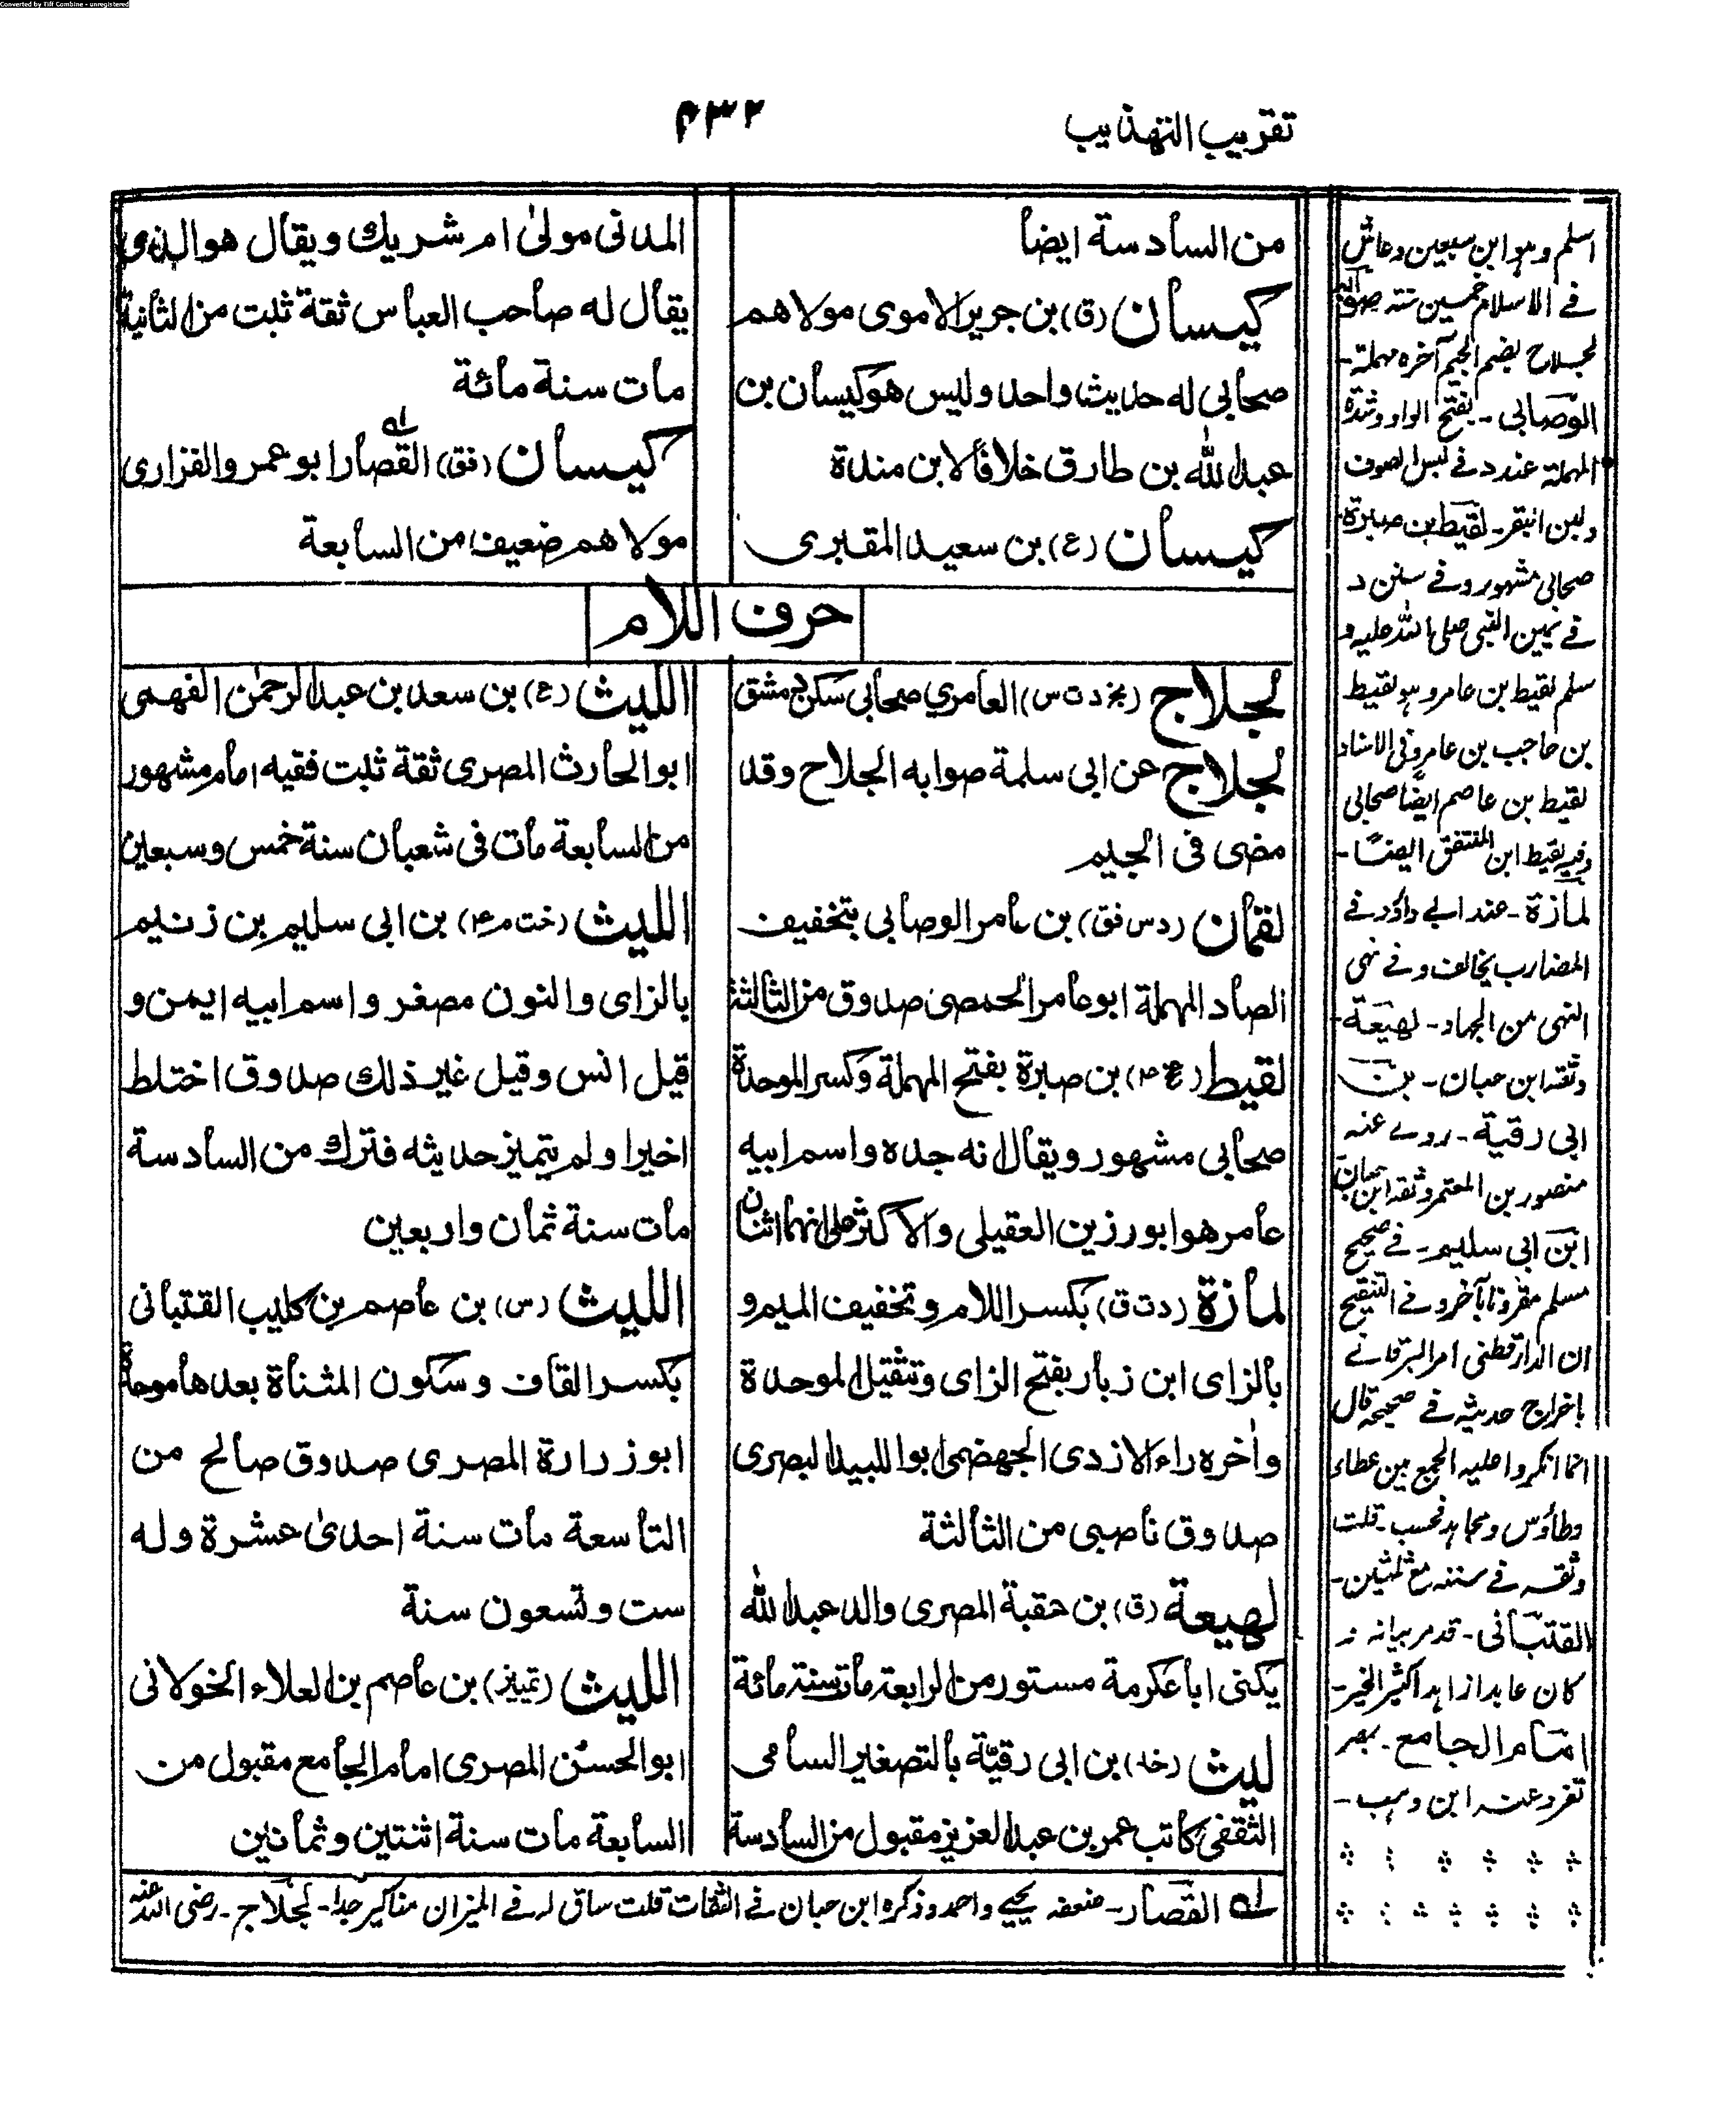 Converted by Tiff Combine - unregistered
تقريب التهذيب
۴۳۲
من السادسة ايضا
كيسان (ق) بن جرير الاموى مولاهم
صحابى له حديث واحد وليس هو كيسان بن
عبد الله بن طارق خلافا لابن مندة
كيسان (ع) بن سعيد المقبرى
المدنى مولىٰ ام شريك ويقال هو الذى
يقال له صاحب العباس ثقة ثبت من الثانية
مات سنة مائة
كيسان (فق) القصار ابو عمر والفزارى
مولاهم ضعيف من السابعة
حرف اللام
لجلاج (بخ د ت س) العامري صحابى سكن دمشق
لجلاج عن ابى سلمة صوابه الجلاح وقد
مضى فى الجيم
لقمان (د س فق) بن عامر الوصابى بتخفيف
الصاد المهملة ابو عامر الحمصى صدوق من الثالثة
لقيط (بخ ۴) بن صبرة بفتح المهملة وكسر الموحدة
صحابى مشهور ويقال انه جده واسم ابيه
عامر هو ابو رزين العقيلى والاكثر على انهما اثنان
لمازة (د ت ق) بكسر اللام وتخفيف الميم و
بالزاى ابن زبار بفتح الزاى وتثقيل الموحدة
واٰخره راء الازدى الجهضمى ابو اللبيد البصرى
صدوق ناصبى من الثالثة
لهيعة (ق) بن عقبة المصرى والد عبد الله
يكنى ابا عكرمة مستور من الرابعة مات سنة مائة
ليث (خد) بن ابى رقيّة بالتصغير السامى
الثقفى كاتب عمر بن عبد العزيز مقبول من السادسة
الليث (ع) بن سعد بن عبد الرحمٰن الفهمى
ابو الحارث المصرى ثقة ثبت فقيه امام مشهور
من السابعة مات فى شعبان سنة خمس وسبعين
الليث (خت م ۴) بن ابى سليم بن زنيم
بالزاى والنون مصغر واسم ابيه ايمن و
قيل انس وقيل غير ذلك صدوق اختلط
اخيرا ولم يتميز حديثه فترك من السادسة
مات سنة ثمان واربعين
الليث (س) بن عاصم بن كليب القتبانى
بكسر القاف وسكون المثناة بعدها موحدة
ابو زرارة المصرى صدوق صالح من
التاسعة مات سنة احدىٰ عشرة وله
ست وتسعون سنة
الليث (تمييز) بن عاصم بن العلاء الخولانى
ابو الحسن المصرى امام الجامع مقبول من
السابعة مات سنة اثنتين وثمانين
اسلم وهو ابن سبعين وعاش
فے الاسلام خمسين سنة صوابه
لجلاج بضم الجيم آخره مهملة۔
الوصابى۔ بفتح الواو وشدة
المهملة عند د فے لبس الصوف
ولبن البقر۔ لقيط بن صبرة۔
صحابى مشهور و فے سنن د
فے يمين النبى صلى الله عليه و
سلم لقيط بن عامر وهو لقيط
بن حاجب بن عامر وفى الاسناد
لقيط بن عاصم ايضا صحابى
وفيه لقيط ابن المنتفق ايضًا۔
لمازة۔ عند ابے داؤد فے
المضارب يخالف و فے نهى
النهى من الجهاد۔ لهيعة۔
وثقه ابن حبان۔ بن
ابى رقية۔ روے عنه
منصور بن المعتمر وثقه ابن حبان
ابن ابى سليم۔ فے صحيح
مسلم مقرونا بآخر و فے التنقيح
ان الدارقطنى امر البرقانے
باخراج حديثه فے صحيحه قال
انما انكروا عليه الجمع بين عطاء
وطاؤس ومجاهد فحسب۔ قلت
وثقه فے سننه مع ثلثين۔
القتبانى۔ قد مر بيانه
كان عابدا زاهدا كثير الخير۔
امام الجامع۔ بمصر
تفرد عنه ابن وهب۔
لـه القصار۔ ضعفه يحيے واحمد وذكره ابن حبان فے الثقات قلت ساق له فے الميزان مناكير جدا۔ لجلاج۔ رضى الله عنه